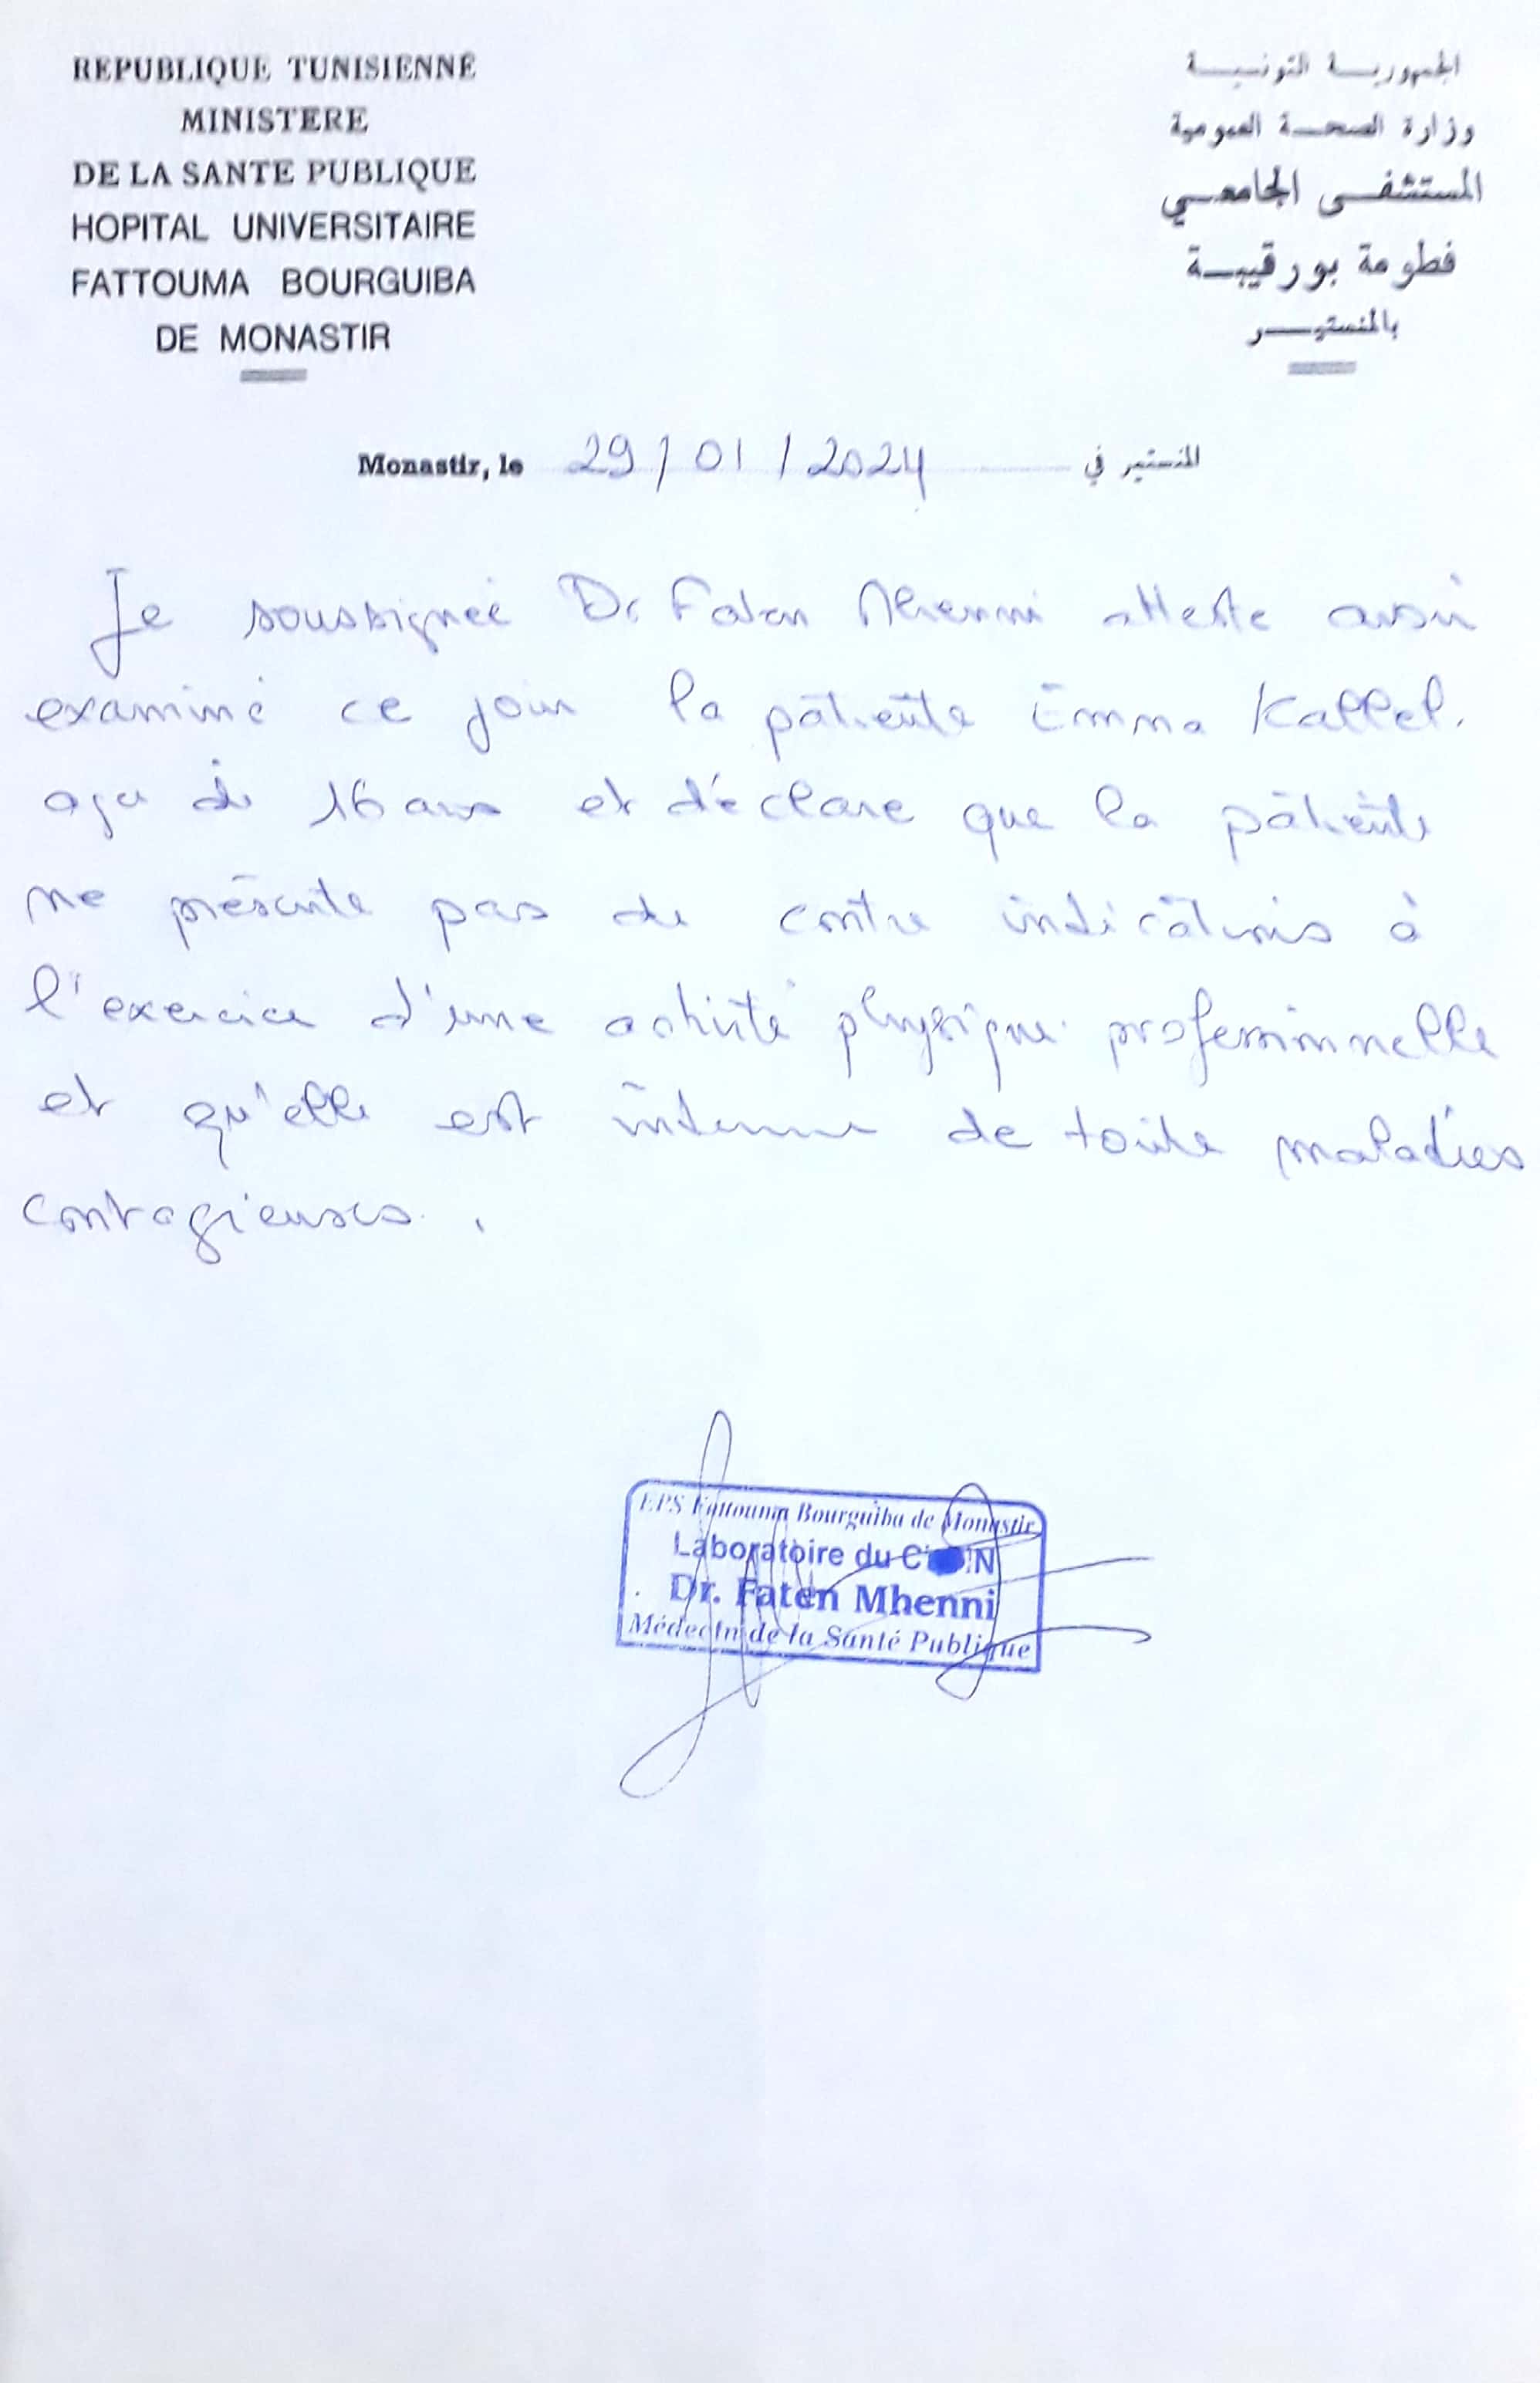 REPUBLIQUE TUNISIENNE
MINISTERE
DE LA SANTE PUBLIQUE
HOPITAL UNIVERSITAIRE
FATTOUMA BOURGUIBA
DE MONASTIR
الجمهورية التونسية
وزارة الصحة العمومية
المستشفى الجامعي
فطومة بورقيبة
بالمنستير
Monastir, le 29/01/2024 المنستير في
Je soussignée Dr Faten Mhenni atteste avoir
examiné ce jour la patiente Emma Kallel.
age de 16 ans et déclare que la patiente
ne présente pas de contre indications à
l'exercice d'une activité physique professionnelle
et qu'elle est indemne de toute maladies
contagieuses.
EPS Fattouma Bourguiba de Monastir
Laboratoire du
Dr. Faten Mhenni
Médecin de la Santé Publique